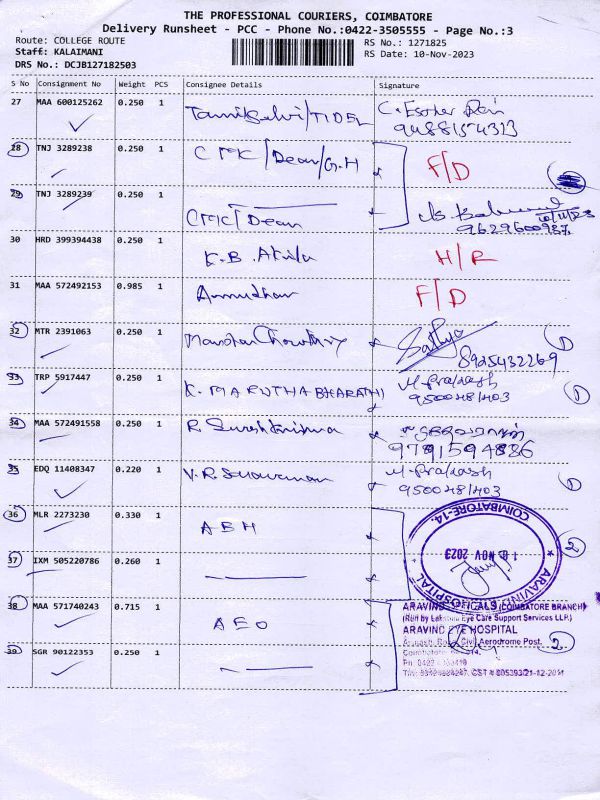 THE PROFESSIONAL COURIERS, COIMBATORE
Delivery Runsheet - PCC - Phone No.:0422-3505555 - Page No.:3
Route: COLLEGE ROUTE
Staff: KALAIMANI
DRS No.: DCJB127182503
RS No.: 1271825
RS Date: 10-Nov-2023
S No Consignment No Weight PCS Consignee Details Signature
27 MAA 600125262 0.250 1 Tamilselvi/TIDEL
9488154313
28 TNJ 3289238 0.250 1 CMC/Dean/G.H F/D
29 TNJ 3289239 0.250 1 CMC/Dean
9629600987
30 HRD 399394438 0.250 1 K.B. Akila H/R
31 MAA 572492153 0.985 1 Amudhan F/D
32 MTR 2391063 0.250 1 Sathya 1
8925432269
33 TRP 5917447 0.250 1 K. MARUTHABHARATHI M. Prakash 1
9500481403
34 MAA 572491558 0.250 1 R. Sureshkrishna
9791594886
35 EDQ 11408347 0.220 1 V.R. M. Prakash 1
9500481403
36 MLR 2273230 0.330 1 AEH 2
37 IXM 505220786 0.260 1
38 MAA 571740243 0.715 1 AEO 2
39 SGR 90122353 0.250 1
COIMBATORE-14.
NOV 2023
ARAVIND HOSPITAL
(COIMBATORE BRANCH)
Eye Care Support Services LLP.)
ARAVIND EYE HOSPITAL
Civil Aerodrome Post.